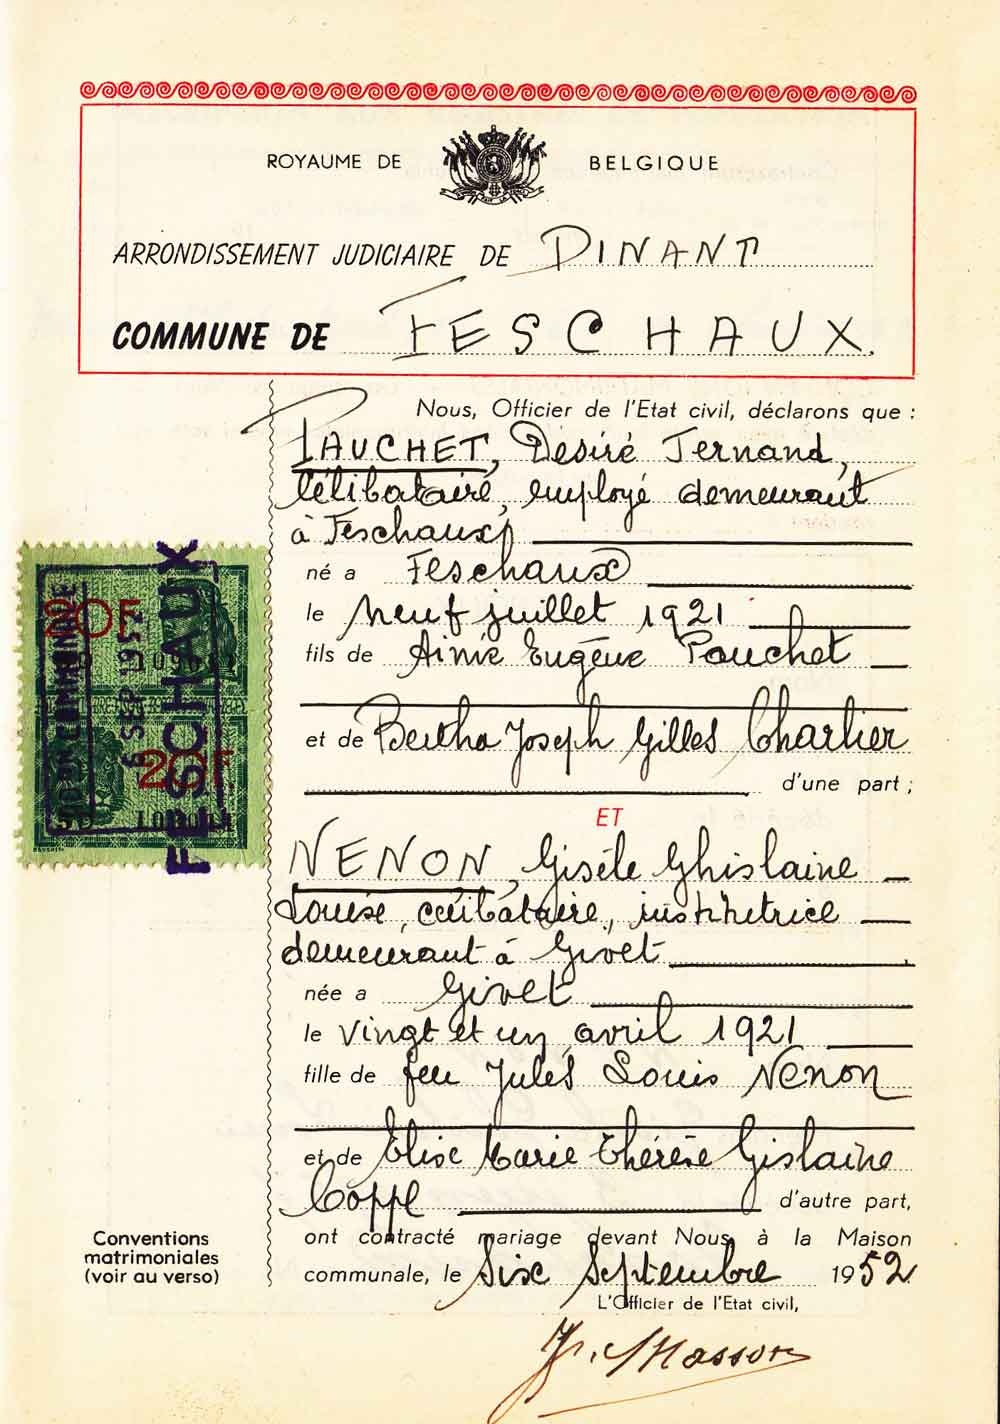 ROYAUME DE BELGIQUE
ARRONDISSEMENT JUDICIAIRE DE DINANT
COMMUNE DE FESCHAUX.
Nous, Officier de l'Etat civil, déclarons que :
PAUCHET, Désiré Fernand,
célibataire, employé demeurant
à Feschaux,
né a Feschaux
le neuf juillet 1921
fils de Aimé Eugène Pauchet
et de Bertha Joseph Gilles Charlier
d'une part ;
ET
NENON, Gisèle Ghislaine
Louise, célibataire, institutrice
demeurant à Givet
née a Givet
le vingt et un avril 1921
fille de feu Jules Louis Nenon
et de Elise Marie Thérèse Gislaine
Coppe d'autre part,
ont contracté mariage devant Nous, à la Maison
communale, le Six Septembre 1952
L'Officier de l'Etat civil,
Masson
Conventions
matrimoniales
(voir au verso)
20F
20F
6 SEP 1952
FESCHAUX